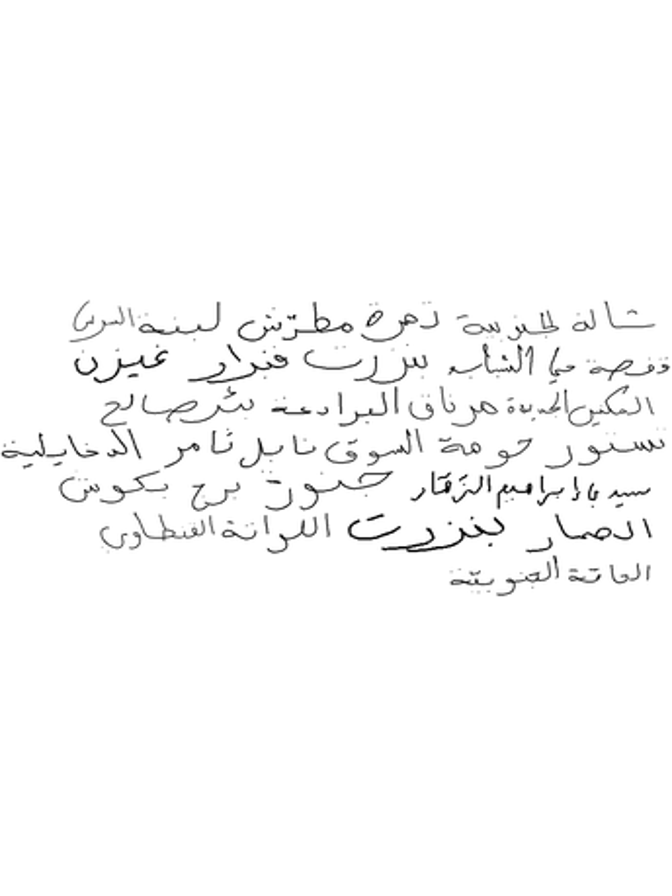 شالة الجنوبية زهرة مطرّش لبنة
قفصة حي الشباب بنزرت فندار غيزن
السكين الجديدة مرناق البرادعة بئر صالح
تستور حومة السوق نابل ثامر الدخايلية
سيدي إبراهيم الزقار جنون برج بكوش
الصمار بنزرت اللواتة القنطاوي
القاتة الجنوبيّة